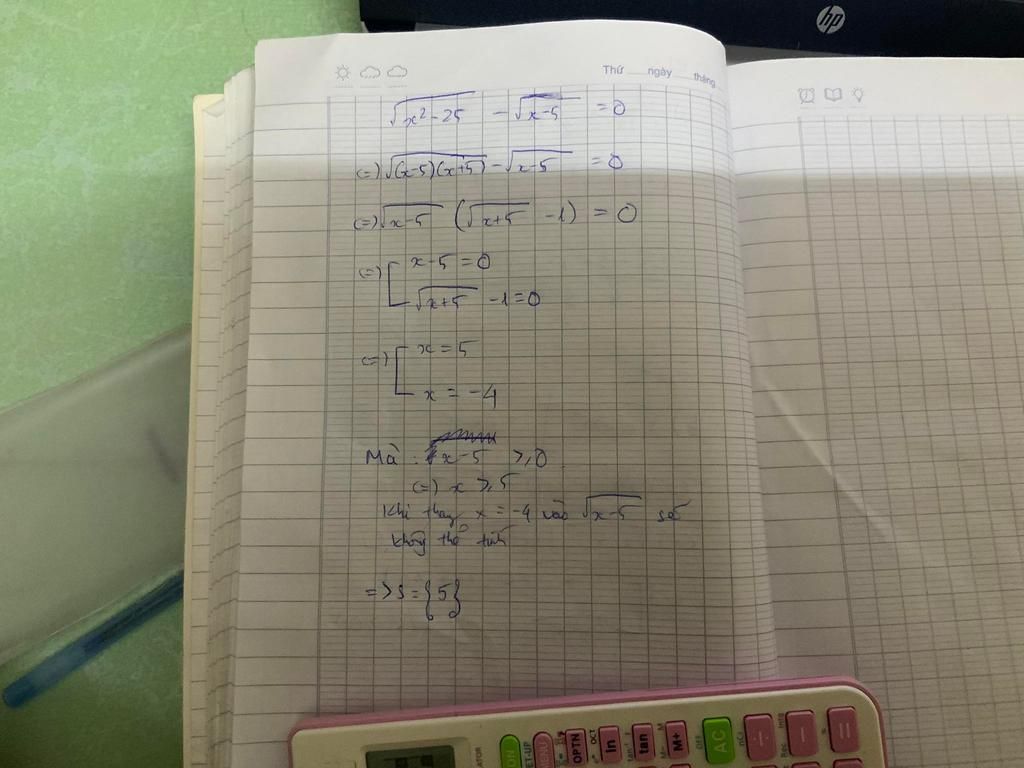 hp
Thứ ngày tháng
√(x² - 25) - √(x-5) = 0
(=) √((x-5)(x+5)) - √(x-5) = 0
(=) √(x-5) (√(x+5) - 1) = 0
(=) [ x-5 = 0
√(x+5) - 1 = 0
(=) [ x = 5
x = -4
Mà : x-5 ≥ 0
(=) x ≥ 5
Khi thay x = -4 vào √(x-5) sẽ
không thể tính
=> S = {5}
ON MENU OPTN ln tan M+ AC ÷ - =